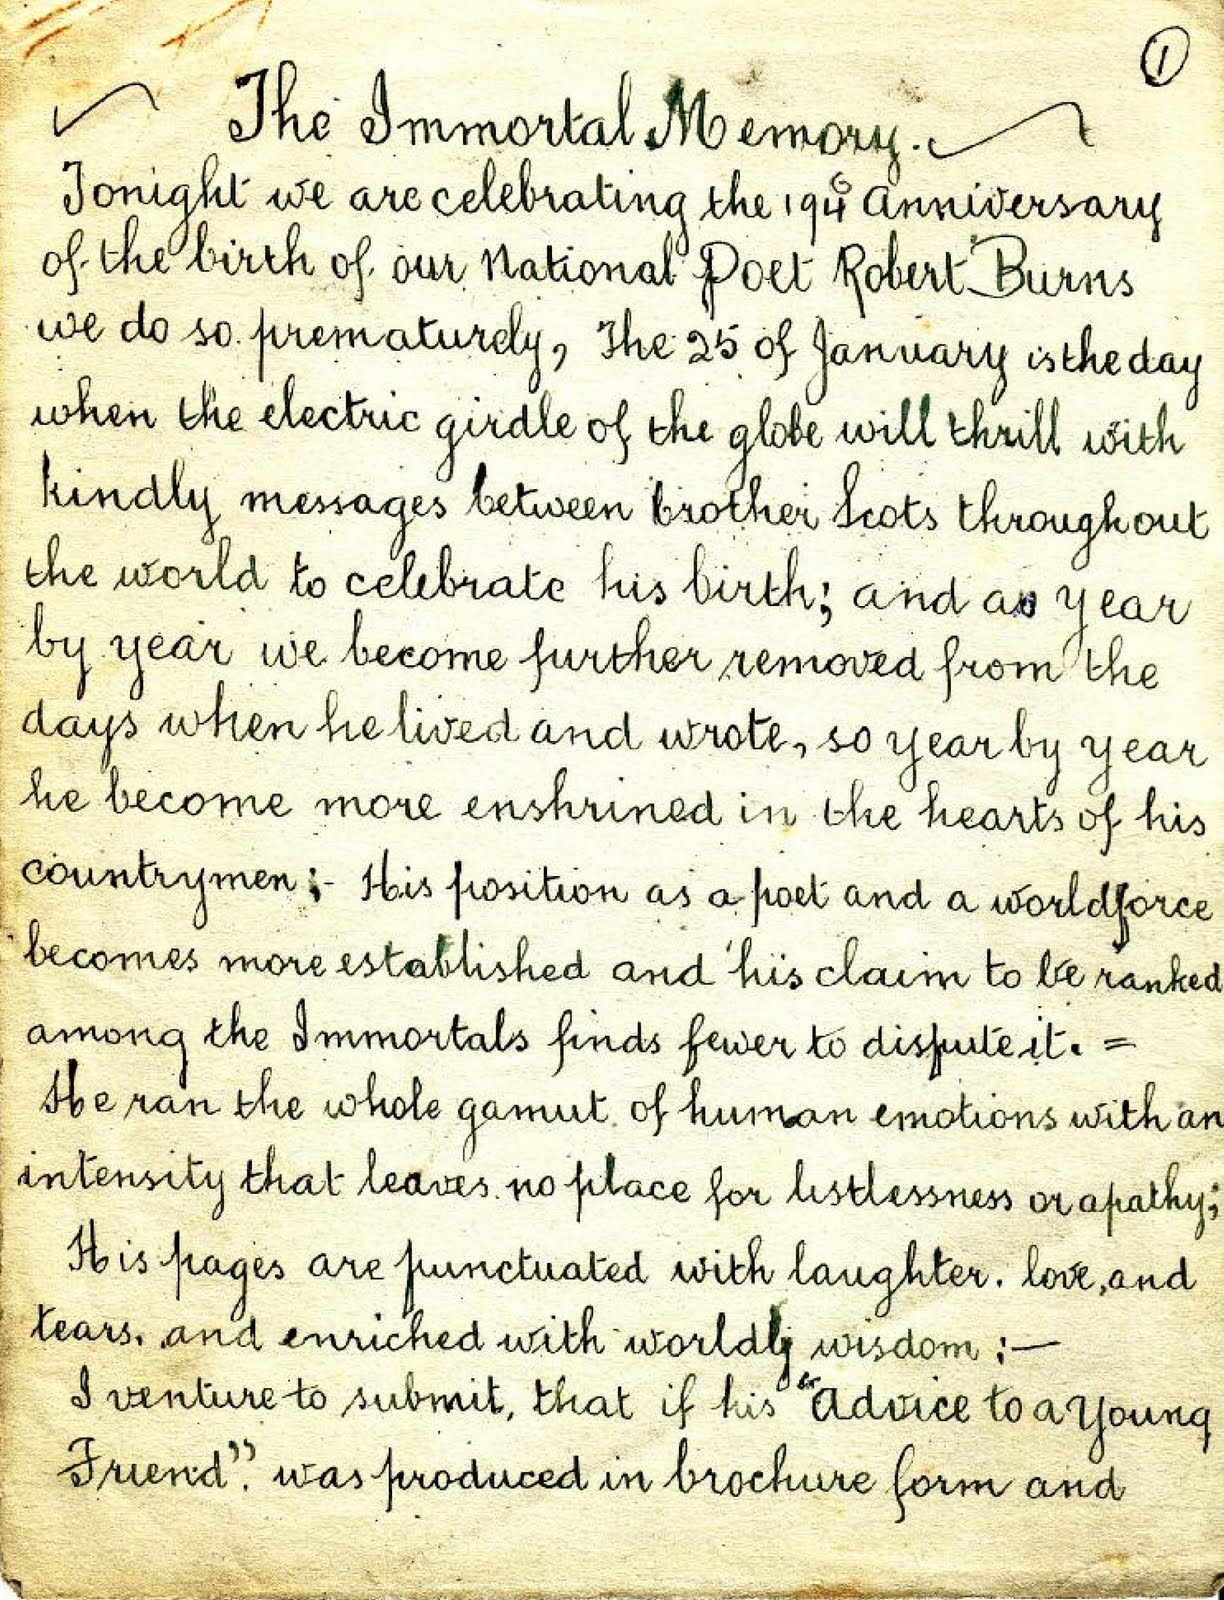 1
The Immortal Memory.
Tonight we are celebrating the Anniversary
of the birth of our National Poet Robert Burns
we do so prematurely, The 25 of January is the day
when the electric girdle of the globe will thrill with
kindly messages between brother Scots throughout
the world to celebrate his birth; and as year
by year we become further removed from the
days when he lived and wrote, so year by year
he become more enshrined in the hearts of his
countrymen;- His position as a poet and a world force
becomes more established and his claim to be ranked
among the Immortals finds fewer to dispute it. =
He ran the whole gamut of human emotions with an
intensity that leaves no place for listlessness or apathy;
His pages are punctuated with laughter. love, and
tears. and enriched with worldly wisdom ;—
I venture to submit, that if his "Advice to a Young
Friend". was produced in brochure form and